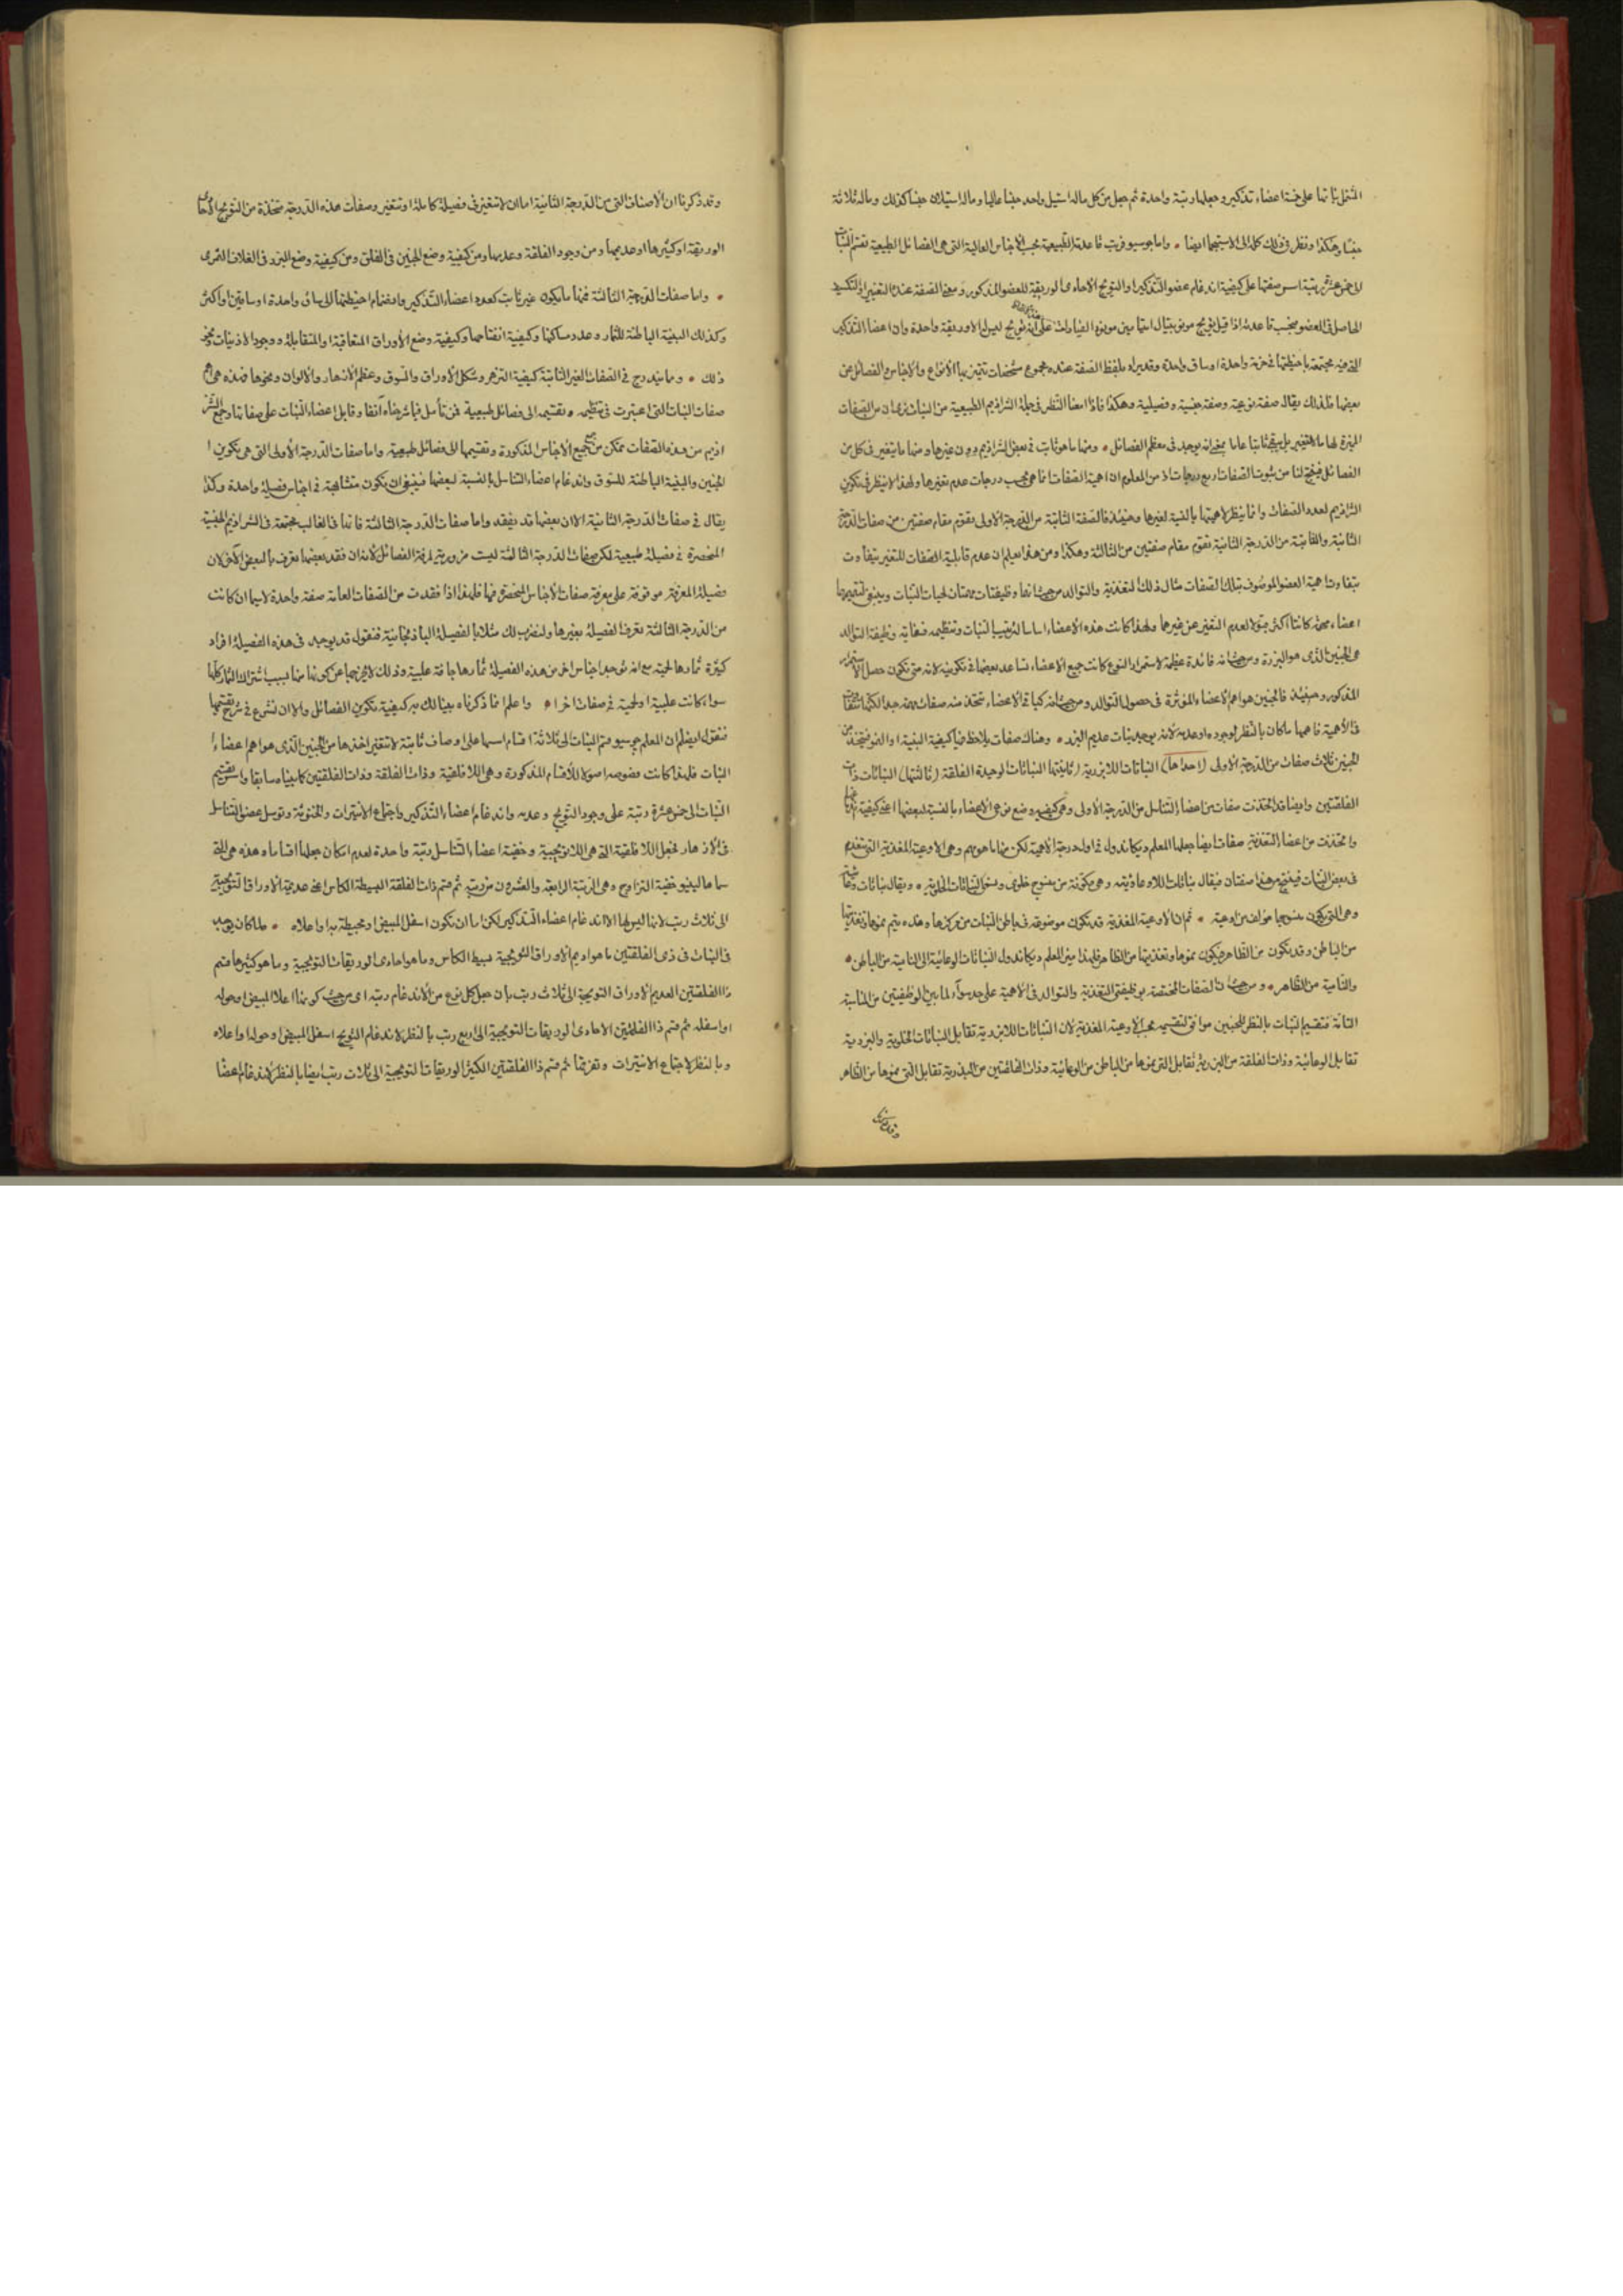 المشتمل نباتها على خمسة اعضاء تذكير وجعلها رتبة واحدة ثم جعل من كل ماله استيل واحد جنسا عاليا وماله استيلان جنسا كذلك وماله ثلاثة
جنسا وهكذا ونظر في ذلك كله الى الاستيجما ايضا • واما جوسيو فرتب قاعدته الطبيعية بحسب الاجناس العالية التي هي الفصائل الطبيعية تقسم النبات
الى خمس عشرة رتبة اسس صفتها على كيفية اندغام عضو التذكير او التويج الاحادي الوريقة للعضو المذكور ومعنى الصفة عنده التغير او التكسير
الحاصل في العضو فبحسب قاعدته اذا قيل تويج يقال على انه تويج ليس له الا وريقة واحدة وان اعضاء التذكير
التي فيه مجتمعة باحيطتها في حزمة واحدة او ساق واحدة وقد يراد بلفظ الصفة عنده مجموع مشخصات تتميز بها الانواع والاجناس والفصائل عن
بعضها فلذلك يقال صفة نوعية وصفة جنسية وفصيلية وهكذا فاذا امعنا النظر في جملة الشراذيم الطبيعية من النبات نرى ان من الصفات
المميزة لها ما لا يتغير بل يبقى ثابتا عاما بمعنى انه يوجد في معظم الفصائل • ومنها ما هو ثابت في بعض الشراذيم دون غيرها ومنها ما يتغير في كل من
الفصائل فينتج لنا من ثبوت الصفات اربع درجات اذ من المعلوم ان اهمية الصفات انما هي بحسب درجات عدم تغيرها ولهذا لا ينظر في تكوين
الشراذيم لعدد الصفات وانما ينظر لاهميتها بالنسبة لغيرها وحينئذ فالصفة الثابتة من الدرجة الاولى تقوم مقام صفتين من صفات الدرجة
الثانية والثابتة من الدرجة الثانية تقوم مقام صفتين من الثالثة وهكذا ومن هذا يعلم ان عدم قابلية الصفات للتغير يتفاوت
بتفاوت اهمية العضو الموصوف بتلك الصفات مثال ذلك التغذية والتوالد من حيث انهما وظيفتان مهمتان لحياة النبات وينبغي لتتميمها
اعضاء مهمة كانتا اكثر ثبوتا لعدم التغير عن غيرهما ولهذا كانت هذه الاعضاء اساسا لترتيب النبات وتنظيمه فغاية وظيفة التوالد
هي الجنين الذي هو البزرة ومن حيث انه فائدة عظيمة لاستمرار النوع كانت جميع الاعضاء تساعد بعضها في تكوينه لانه متى تكون حصل الاستمرار
المذكور وحينئذ فالجنين هو اهم الاعضاء المؤثرة في حصول التوالد ومن حيث انه كباقي الاعضاء تتخذ منه صفات مهمة جدا لكنها تتفاوت
في الاهمية فاهمها ما كان بالنظر لوجوده او عدمه لانه يوجد نبات عديم البزر • وهناك صفات يلاحظ فيها كيفية البنية او النمو فيتخذ من
الجنين ثلاث صفات من الدرجة الاولى (احداها) النباتات اللابزرية (ثانيتها) النباتات الوحيدة الفلقة (ثالثتها) النباتات ذات
الفلقتين وايضا قد اتخذت صفات من اعضاء التناسل من الدرجة الاولى وهي كيفية وضع نوعي الاعضاء بالنسبة لبعضها اعني كيفية
واتخذت من اعضاء التغذية صفات ايضا جعلها المعلم ديكاندول في اول درجة الاهمية لكن منها ما هو مهم وهي الاوعية المغذية التي تنعدم
في بعض النبات فينتج من هذا صفتان فيقال نباتات اللاوعائية وهي مكونة من منسوج خلوي وتسمى النباتات الخلوية • ويقال نباتات وعائية
وهي التي يكون منسوجها مؤلفا من اوعية • ثم ان الاوعية المغذية قد تكون موضوعة في باطن النبات من مركزها وهذه يتم نموها وتغذيتها
من الباطن وقد تكون من الظاهر فيكون نموها وتغذيتها من الظاهر فلهذا ميز المعلم ديكاندول النباتات الوعائية الى النامية من الباطن •
والنامية من الظاهر • ومن حيث ان الصفات المختصة بوظيفتي التغذية والتوالد في الاهمية على حد سواء لما بين الوظيفتين من المناسبة
التامة فتقسيم النبات بالنظر للجنين موافق لتقسيمه بحسب الاوعية المغذية لان النباتات اللابزرية تقابل النباتات الخلوية والبزرية
تقابل الوعائية وذات الفلقة من البزرية تقابل التي نموها من الباطن من الوعائية وذات الفلقتين من البزرية تقابل التي نموها من الظاهر
وقد ذكرنا
وقد ذكرنا ان الاصناف التي من الدرجة الثانية اما ان لا تتغير في فصيلة كاملة او تتغير وصفات هذه الدرجة متخذة من التويج الاحادي
الوريقة او كثيرها او عديمها ومن وجود الفلقة وعدمها ومن كيفية وضع الجنين في الفلق ومن كيفية وضع البزر في الغلاف الثمري
• واما صفات الدرجة الثالثة فمنها ما يكون غير ثابت كعدد اعضاء التذكير وانضمام احيطتها الى ساق واحدة او ساقين او اكثر
وكذلك البنية الباطنة للثمار وعدد مساكنها وكيفية انفتاحها وكيفية وضع الأوراق المتعاقبة او المتقابلة ووجود الاذينات ونحو
ذلك • ومما يندرج في الصفات الغير الثابتة كيفية التزهر وشكل الأوراق والسوق وعظم الازهار والالوان ونحوها فهذه هي اهم
صفات النبات التي اعتبرت في تنظيمه • تقسيمه الى فصائل طبيعية فمن تأمل فيما شرحناه آنفا وقابل اعضاء النبات على صفاتها وجمع الشر
اذيم من هذه الصفات تمكن من جميع الاجناس المذكورة وتقسيمها الى فصائل طبيعية واما صفات الدرجة الأولى التي هي تكوين ا
لجنين والبنية الباطنة للسوق واندغام اعضاء التناسل بالنسبة لبعضها فينبغي ان يكون متشابهة في اجناس فصيلة واحدة وكذا
يقال في صفات الدرجة الثانية الا ان بعضها قد يفقد واما صفات الدرجة الثالثة فانها في الغالب مجتمعة في الشراذيم الجنسية
المنحصرة في فصيلة طبيعية لكن صفات الدرجة الثالثة ليست ضرورية لمعرفة الفصائل لانه ان فقد بعضها تعرف بالبعض الآخر لان
فصيلة المعرفة موقوفة على معرفة صفات الأجناس المنحصرة فيها فلهذا اذا فقدت من الصفات العامة صفة واحدة لاسيما ان كانت
من الدرجة الثالثة تعرف الفصيلة بغيرها ولنضرب لك مثلا بالفصيلة الباذنجانية فنقول قد يوجد في هذه الفصيلة افراد
كثيرة ثمارها لحمية مع انه توجد اجناس اخر من هذه الفصيلة ثمارها جافة علبية وذلك لا يخرجها عن كونها منها بسبب اشتراك الثمار كلها
سواء كانت علبية او لحمية في صفات اخرا • واعلم انما ذكرناه بينا لك به كيفية تكوين الفصائل والان نشرع في شرح تقسيمها
فنقول ايضا ان المعلم جوسيو قسم النبات الى ثلاثة اقسام اسسها على اوصاف ثابتة لا تتغير اخذها من الجنين الذي هو اهم اعضاء ا
النبات فلهذا كانت فصوصه اصولا للأقسام المذكورة وهي اللافلقية وذات الفلقة وذات الفلقتين كما بيناه سابقا واسس تقسيم
النبات الى خمس عشرة رتبة على وجود التويج وعدمه واندغام اعضاء التذكير واجتماع الأنتيرات والخنوثة وتوسل عضو التناسل
في الأزهار فجعل اللافلقية التي هي اللاتويجية وخفية اعضاء التناسل رتبة واحدة لعدم امكان جعلها اقساما وهذه هي التي
سماها لينيو خفية التزاوج وهي الرتبة الرابعة والعشرون من رتبه ثم قسم ذات الفلقة البسيطة الكاس اعني عديمة الأوراق التويجية
الى ثلاث رتب لانها ليس لها الا اندغام اعضاء التذكير لكن اما ان تكون اسفل المبيض او محيطة به او اعلاه • ولما كان يوجد
في النبات في ذي الفلقتين ما هو عديم الأوراق التويجية بسيط الكاس وما هو احادي الوريقات التويجية وما هو كثيرها قسم
ذا الفلقتين العديم الأوراق التويجية الى ثلاث رتب بان جعل كل نوع من الأندغام رتبة اي من حيث كونها اعلا المبيض او حوله
او اسفله ثم قسم ذا الفلقتين الاحادي الوريقات التويجية الى اربع رتب بالنظر لاندغام التويج اسفل المبيض او حوله او اعلاه
وبالنظر لاجتماع الانتيرات وتفرقها ثم قسم ذا الفلقتين الكثير الوريقات التويجية الى ثلاث رتب ايضا بالنظر لاندغام اعضا